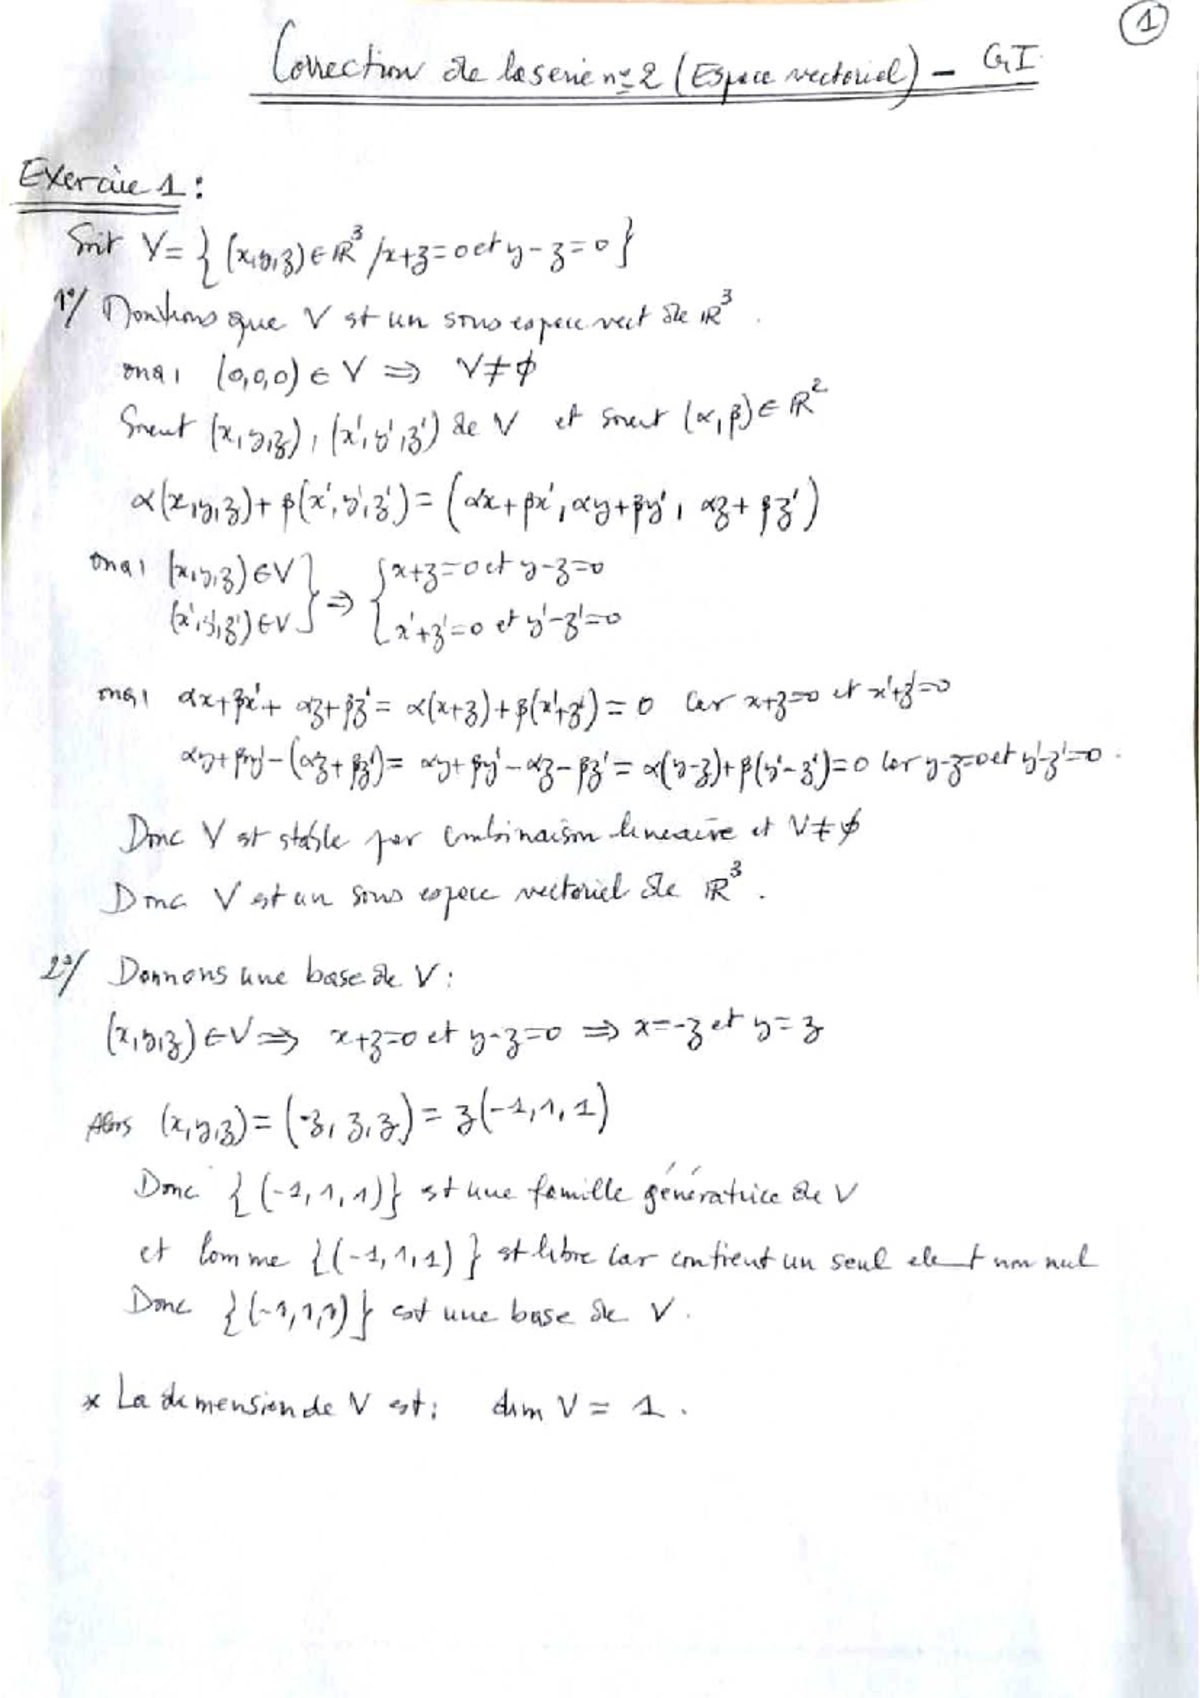 1
Correction de la serie n° 2 (Espace vectoriel) - GI
Exercice 1 :
Soit V = { (x,y,z) ∈ ℝ³ / x+z=0 et y-z=0 }
1°/ Montrons que V est un sous espace vect de ℝ³.
on a : (0,0,0) ∈ V ⇒ V ≠ ∅
Soient (x,y,z), (x',y',z') de V et soient (α,β) ∈ ℝ²
α(x,y,z) + β(x',y',z') = (αx+βx', αy+βy', αz+βz')
on a : (x,y,z) ∈ V } ⇒ { x+z=0 et y-z=0
(x',y',z') ∈ V } { x'+z'=0 et y'-z'=0
on a : αx+βx'+αz+βz' = α(x+z)+β(x'+z') = 0 car x+z=0 et x'+z'=0
αy+βy'-(αz+βz') = αy+βy'-αz-βz' = α(y-z)+β(y'-z')=0 car y-z=0 et y'-z'=0.
Donc V est stable par combinaison lineaire et V ≠ ∅
Donc V est un sous espace vectoriel de ℝ³.
2°/ Donnons une base de V :
(x,y,z) ∈ V ⇒ x+z=0 et y-z=0 ⇒ x=-z et y=z
Alors (x,y,z) = (-z, z, z) = z(-1,1,1)
Donc {(-1,1,1)} est une famille génératrice de V
et comme {(-1,1,1)} est libre car contient un seul ele-t non nul
Donc {(-1,1,1)} est une base de V.
* La dimension de V est : dim V = 1.